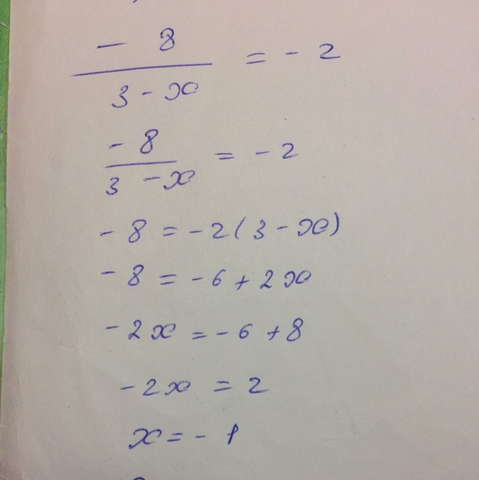 - 8 / 3 - x = - 2
- 8 / 3 - x = - 2
- 8 = - 2 ( 3 - x )
- 8 = - 6 + 2x
- 2x = - 6 + 8
- 2x = 2
x = - 1